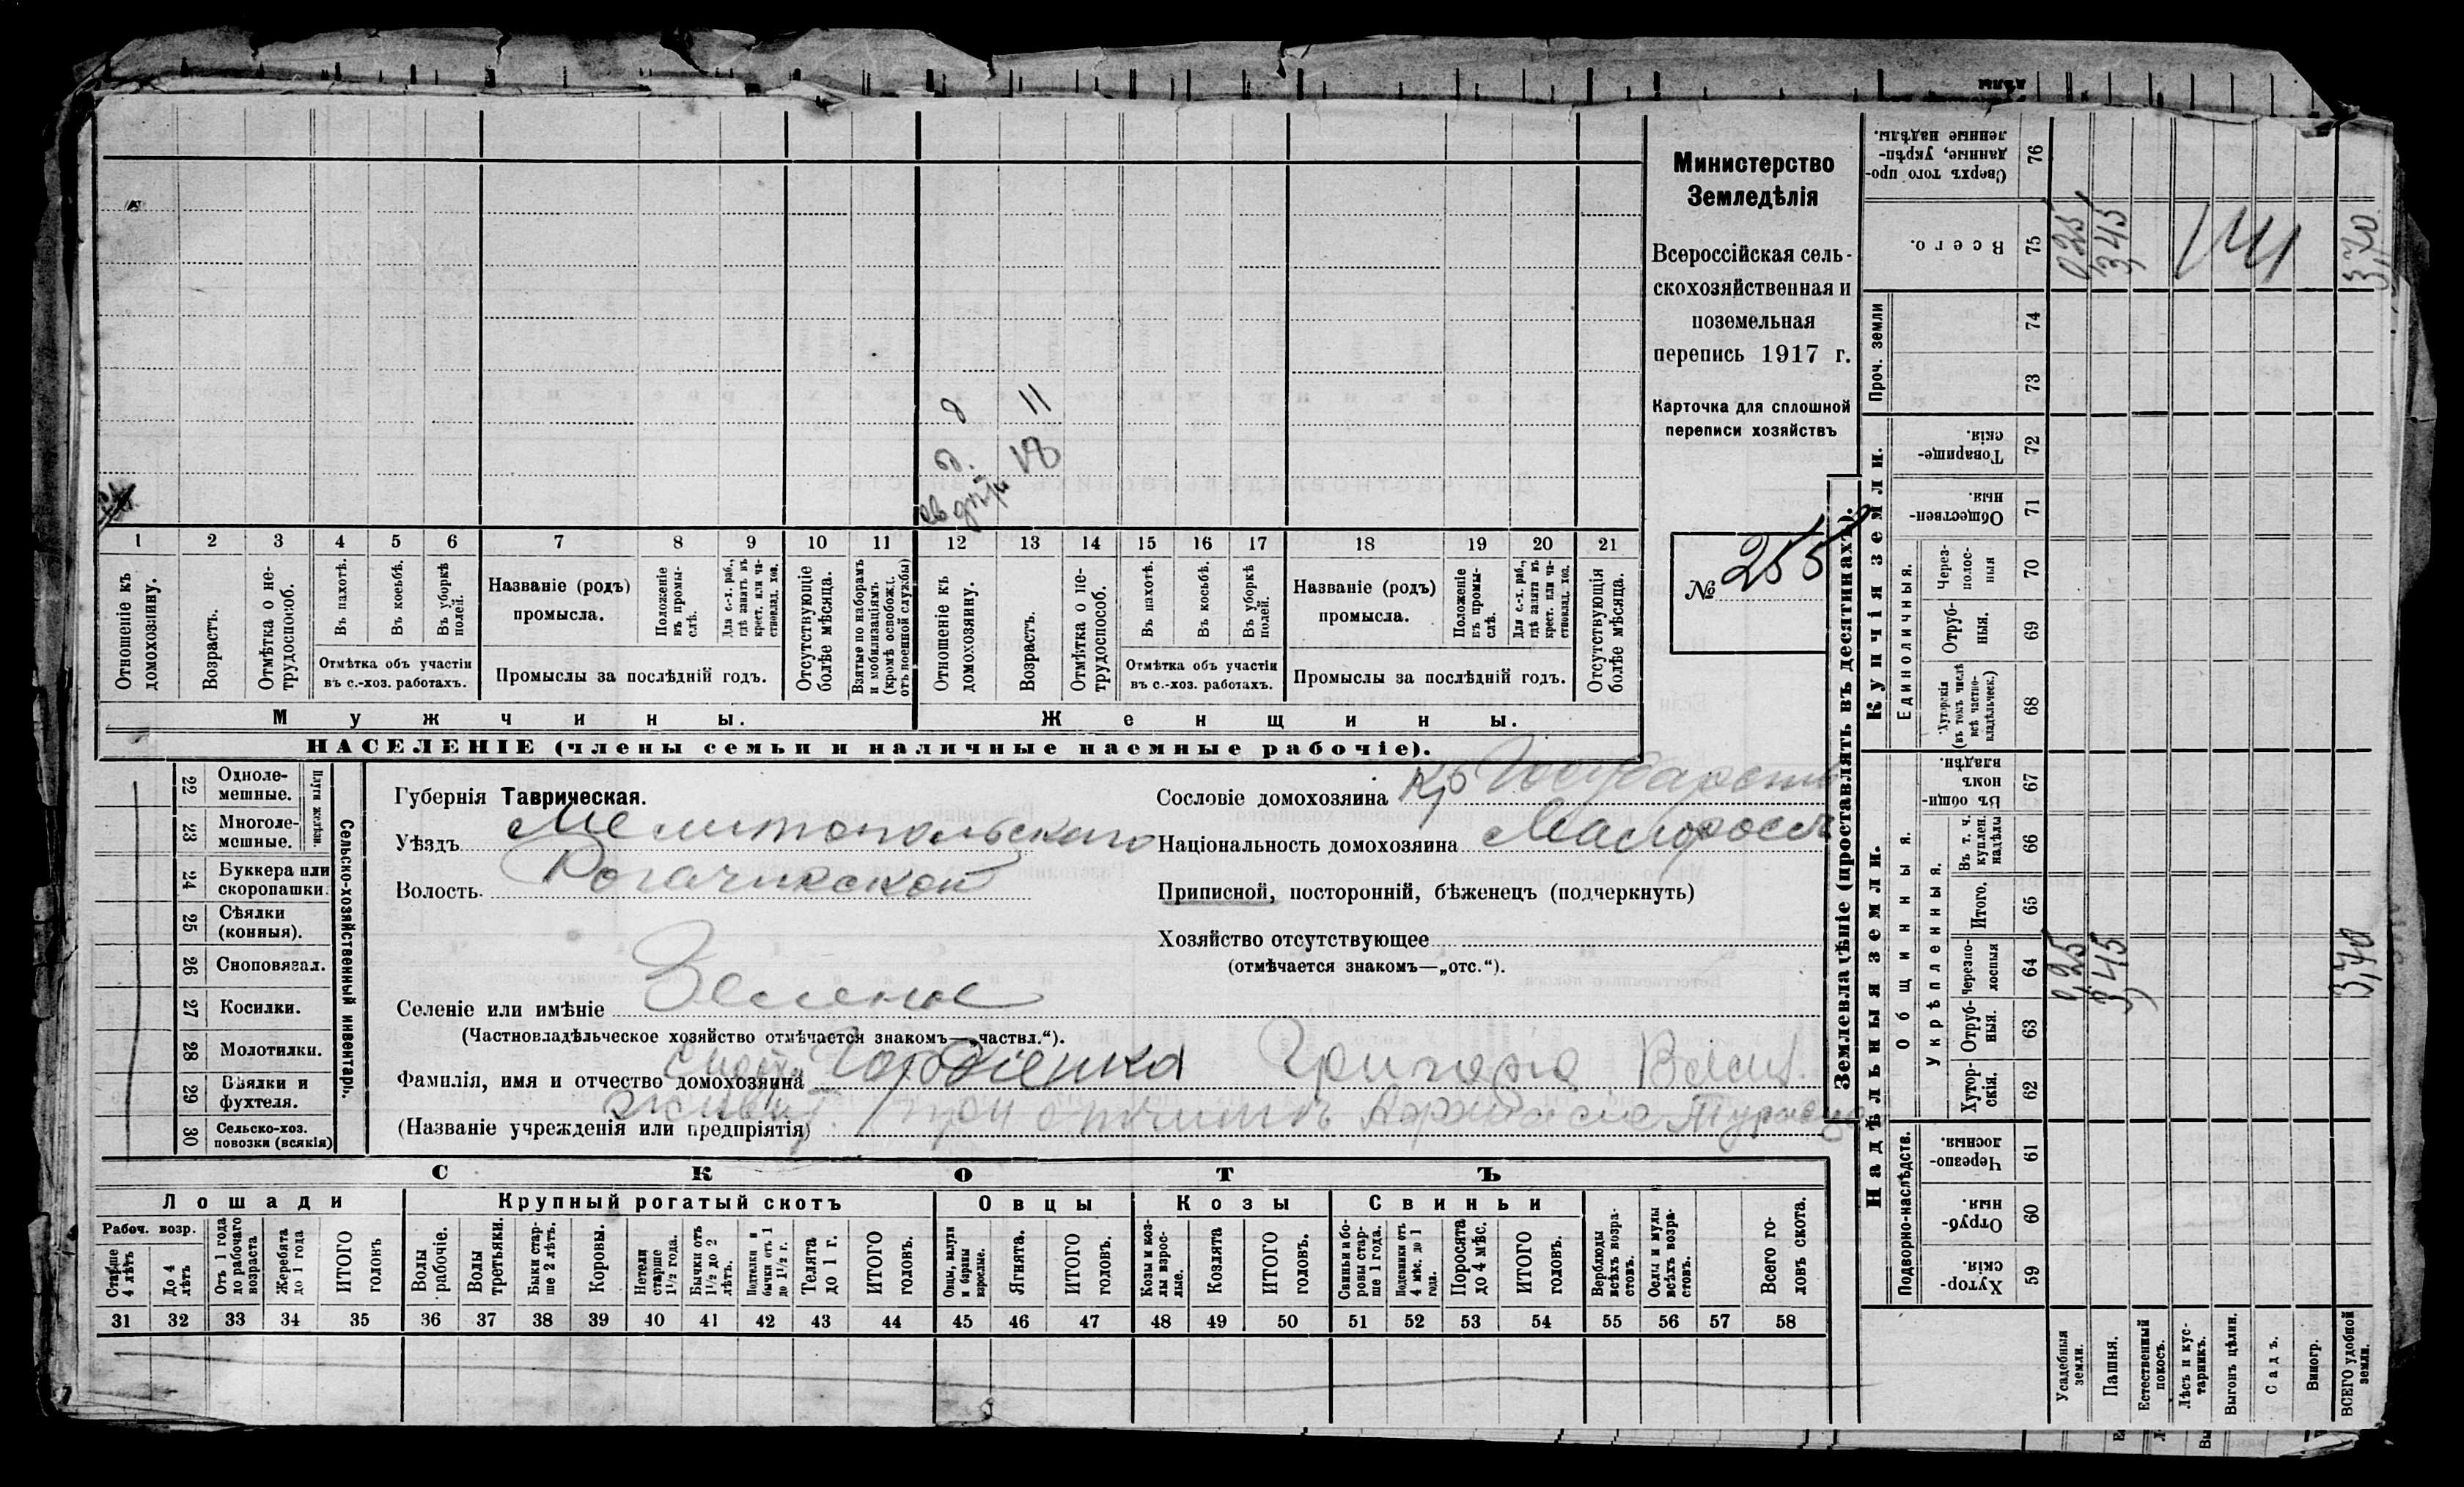 Министерство
Земледѣлія
Всероссійская сель-
скохозяйственная и
поземельная
перепись 1917 г.
Карточка для сплошной
переписи хозяйствъ
№ 255
8 11
6. 18
1 2 3 4 5 6 7 8 9 10 11 12 13 14 15 16 17 18 19 20 21
Отношеніе къ домохозяину.
Возрастъ.
Отмѣтка о не-трудоспособ.
Въ пахотѣ.
Въ косьбѣ.
Въ уборкѣ полей.
Отмѣтка объ участіи
въ с.-хоз. работахъ.
Названіе (родъ)
промысла.
Положеніе въ промы-слѣ.
Для с.-х. раб., гдѣ занятъ въ крест. или ча-стновлад. хоз.
Промыслы за послѣдній годъ.
Отсутствующіе болѣе мѣсяца.
Взятые по наборамъ и мобилизаціямъ (кромѣ освобожд. отъ военной службы)
Отношеніе къ домохозяину.
Возрастъ.
Отмѣтка о не-трудоспособ.
Въ пахотѣ.
Въ косьбѣ.
Въ уборкѣ полей.
Отмѣтка объ участіи
въ с.-хоз. работахъ.
Названіе (родъ)
промысла.
Положеніе въ промы-слѣ.
Для с.-х. раб., гдѣ занята въ крест. или ча-стновлад. хоз.
Промыслы за послѣдній годъ.
Отсутствующія болѣе мѣсяца.
Мужчины.
Женщины.
НАСЕЛЕНІЕ (члены семьи и наличные наемные рабочіе).
Сельско-хозяйственный инвентарь.
Плуги желѣзн.
22 Одноле-мешные.
23 Многоле-мешные.
24 Буккера или скоропашки.
25 Сѣялки (конныя).
26 Сноповязал.
27 Косилки.
28 Молотилки.
29 Вѣялки и фухтеля.
30 Сельско-хоз. повозки (всякія)
Губернія Таврическая.
Уѣздъ Мелитопольскаго
Волость Рогачикской
Сословіе домохозяина Кр
Національность домохозяина Малоросс
Приписной, посторонній, бѣженецъ (подчеркнуть)
Хозяйство отсутствующее
(отмѣчается знакомъ—„отс.“).
Селеніе или имѣніе Зеленое
(Частновладѣльческое хозяйство отмѣчается знакомъ—„частвл.“).
Фамилія, имя и отчество домохозяина Гордіенка Григорія Васил.
(Названіе учрежденія или предпріятія) при отчимѣ
СКОТЪ
Лошади
Крупный рогатый скотъ
Овцы
Козы
Свиньи
Рабоч. возр.
Старше 4 лѣтъ
До 4 лѣтъ
Отъ 1 года до рабочаго возраста
Жеребята до 1 года
ИТОГО головъ
Волы рабочіе.
Волы третьяки.
Быки стар-ше 2 лѣтъ.
Коровы.
Нетели старше 1½ года.
Бычки отъ 1½ до 2 лѣтъ.
Подтелки и бычки отъ 1 до 1½ г.
Телята до 1 г.
ИТОГО головъ.
Овцы, валухи и бараны взрослые.
Ягнята.
ИТОГО головъ.
Козы и коз-лы взрос-лые.
Козлята
ИТОГО головъ.
Свиньи и бо-ровы стар-ше 1 года.
Подсвинки отъ 4 мѣс. до 1 года.
Поросята до 4 мѣс.
ИТОГО головъ.
Верблюды всѣхъ возра-стовъ.
Ослы и мулы всѣхъ возра-стовъ.
Всего го-ловъ скота.
31 32 33 34 35 36 37 38 39 40 41 42 43 44 45 46 47 48 49 50 51 52 53 54 55 56 57 58
Землевладѣніе (проставлять въ десятинахъ).
Надѣльныя земли.
Купчія земли.
Проч. земли
Подворно-наслѣдств.
Общинныя.
Укрѣпленныя.
Единоличныя.
Сверхъ того про-данные, укрѣп-ленные надѣлы. 76
Всего. 75 0,25 3,45 3,70
74
73
Товарище-скія. 72
Обществен-ныя. 71
Через-полос-ныя 70
Отруб-ныя. 69
Хуторскія (въ томъ числѣ всѣ частно-владѣльческ.) 68
Въ общи-номъ владѣн. 67
Въ т. ч. куплен. надѣлы 66
Итого. 65
Черезпо-лосныя 64 0,25 3,45 3,70
Отруб-ныя. 63
Хутор-скія. 62
Черезпо-лосныя. 61
Отруб-ныя. 60
Хутор-скія. 59
Усадебныя земли.
Пашня.
Естественный покосъ.
Лѣсъ и кус-тарникъ.
Выгонъ цѣлин.
Садъ.
Виногр.
ВСЕГО удобной земли.